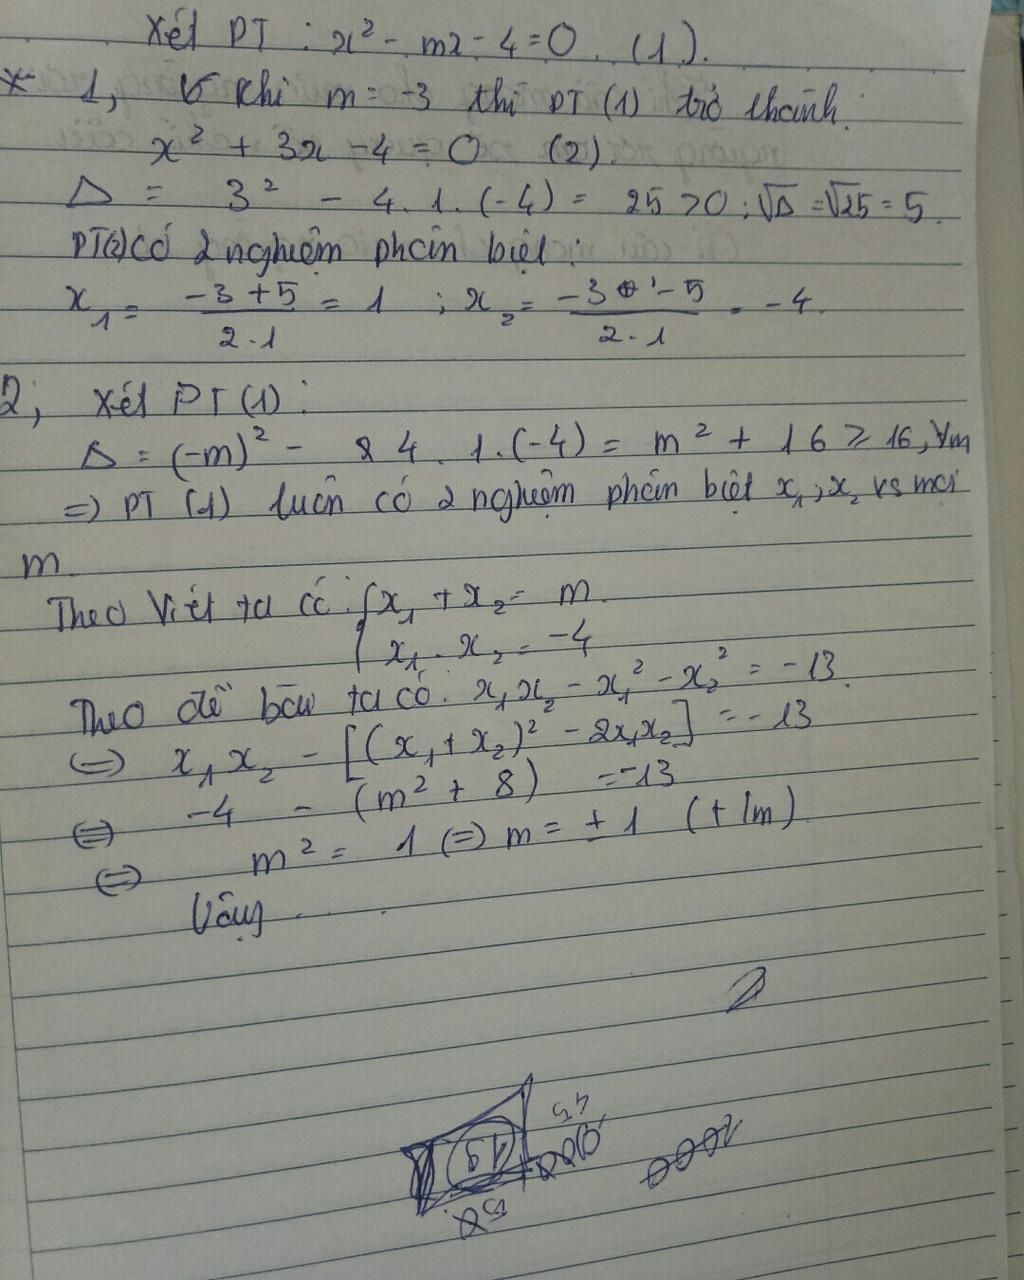 Xét PT : x² - mx - 4 = 0. (1).
* 1, Khi m = -3 thì PT (1) trở thành:
x² + 3x - 4 = 0 (2)
Δ = 3² - 4.1.(-4) = 25 > 0 ; √Δ = √25 = 5.
PT(2) có 2 nghiệm phân biệt :
x₁ = (-3 + 5)/(2.1) = 1 ; x₂ = (-3 - 5)/(2.1) = -4.
2, Xét PT (1) :
Δ = (-m)² - 4.1.(-4) = m² + 16 ≥ 16, ∀m
=> PT (1) luôn có 2 nghiệm phân biệt x₁, x₂ vs mọi
m
Theo Viét ta có : { x₁ + x₂ = m.
x₁ . x₂ = -4
Theo đề bài ta có. x₁x₂ - x₁² - x₂² = -13.
(=) x₁x₂ - [(x₁ + x₂)² - 2x₁x₂] = -13
(=) -4 - (m² + 8) = -13
(=) m² = 1 (=) m = ± 1 (t/m).
Vậy ...
2
19
45
2000